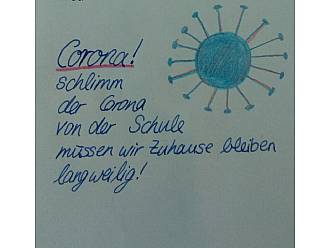 Corona!
schlimm
der Corona
von der Schule
müssen wir Zuhause bleiben
langweilig!